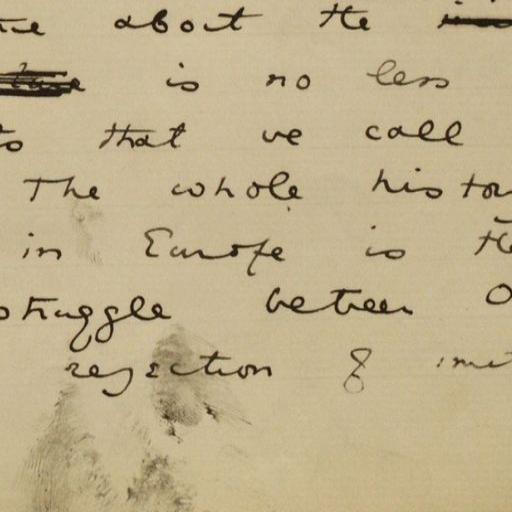 about the
is no less
that we call
The whole
in Europe is
struggle between
rejection &